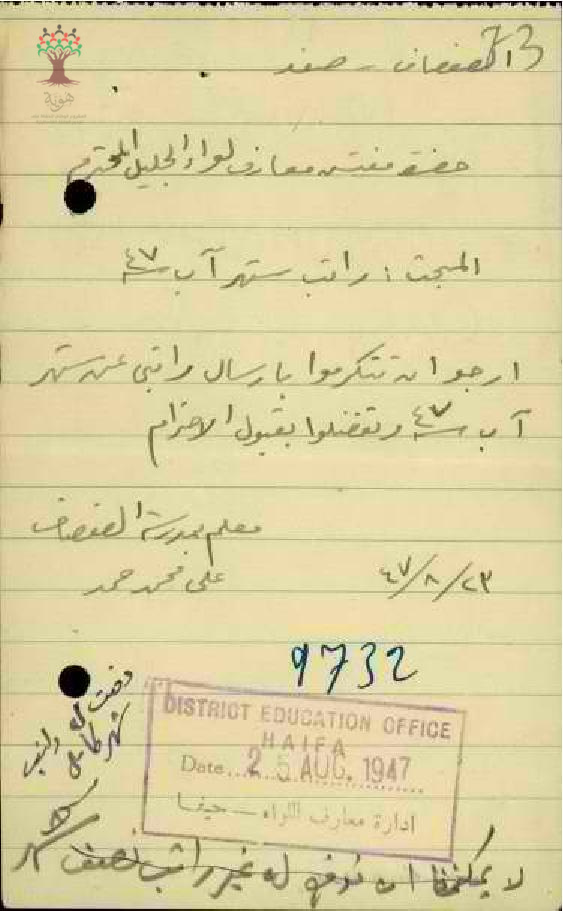 73
الصفصاف - صفد
هوية
حضرة مفتش معارف لواء الجليل المحترم
المبحث : راتب شهر آب سنة ٤٧
ارجو ان تتكرموا بارسال راتبي عن شهر
آب سنة ٤٧ وتفضلوا بقبول الاحترام
معلم مدرسة الصفصاف
٤٧/٨/٢٣ علي محمد حمد
9732
DISTRICT EDUCATION OFFICE
HAIFA
Date 25 AUG. 1947
ادارة معارف اللواء - حيفا
دفعت له
شهر كامل
لا يمكننا ان ندفع له غير راتب نصف شهر